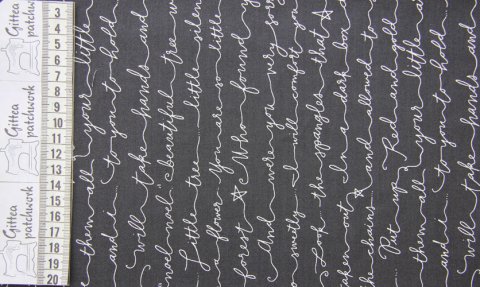 Gittea patchwork
Gittea patchwork
Gittea patchwork
3
4
5
6
7
8
9
10
11
12
13
14
15
16
17
18
19
20
them all your little
and i to you to hold
will take hands and
noel." "beautiful tree w
Little tree little silen
a flower You are so little
forest ☆ Who found y
And were you very sorr
so sweetly I will comfort yo
Look the spangles that ☆
taken out In a dark box a
the chains ☆ and allowed to
Put up Red and gold
them all your little
and i to you to hold
will take hands